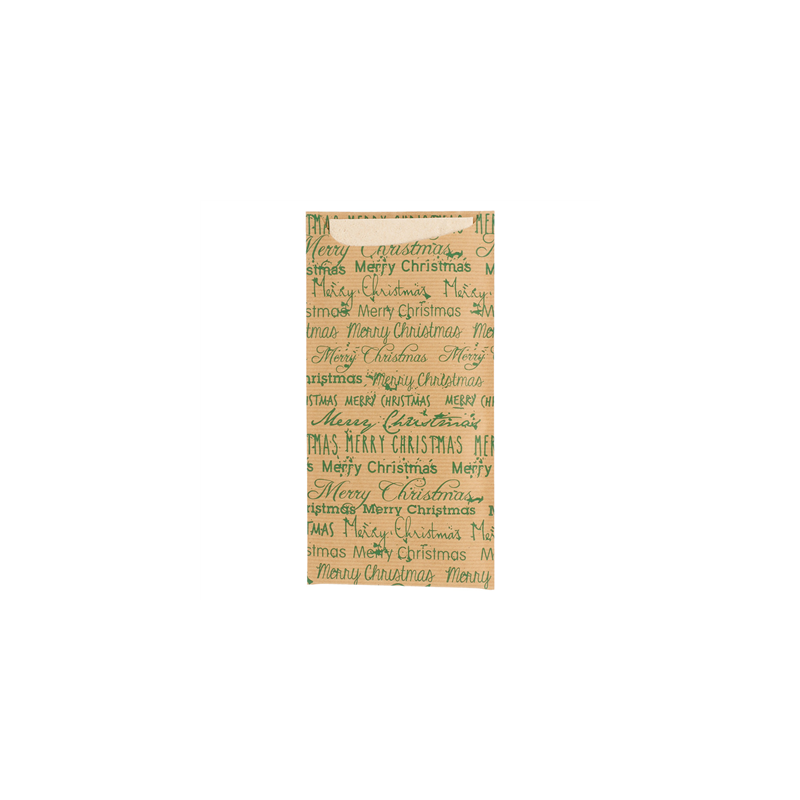 TMAS MERRY CHRISTMAS MER
Merry Christmas
ristmas Merry Christmas M
Merry Christmas Merry
stmas Merry Christmas M
tmas Merry Christmas Me
Merry Christmas Merry
hristmas Merry Christmas
ISTMAS MERRY CHRISTMAS MERRY CHR
Merry Christmas
TMAS MERRY CHRISTMAS MER
s Merry Christmas Merry
Merry Christmas
ristmas Merry Christmas M
TMAS Merry Christmas Me
stmas Merry Christmas M
Merry Christmas Merry